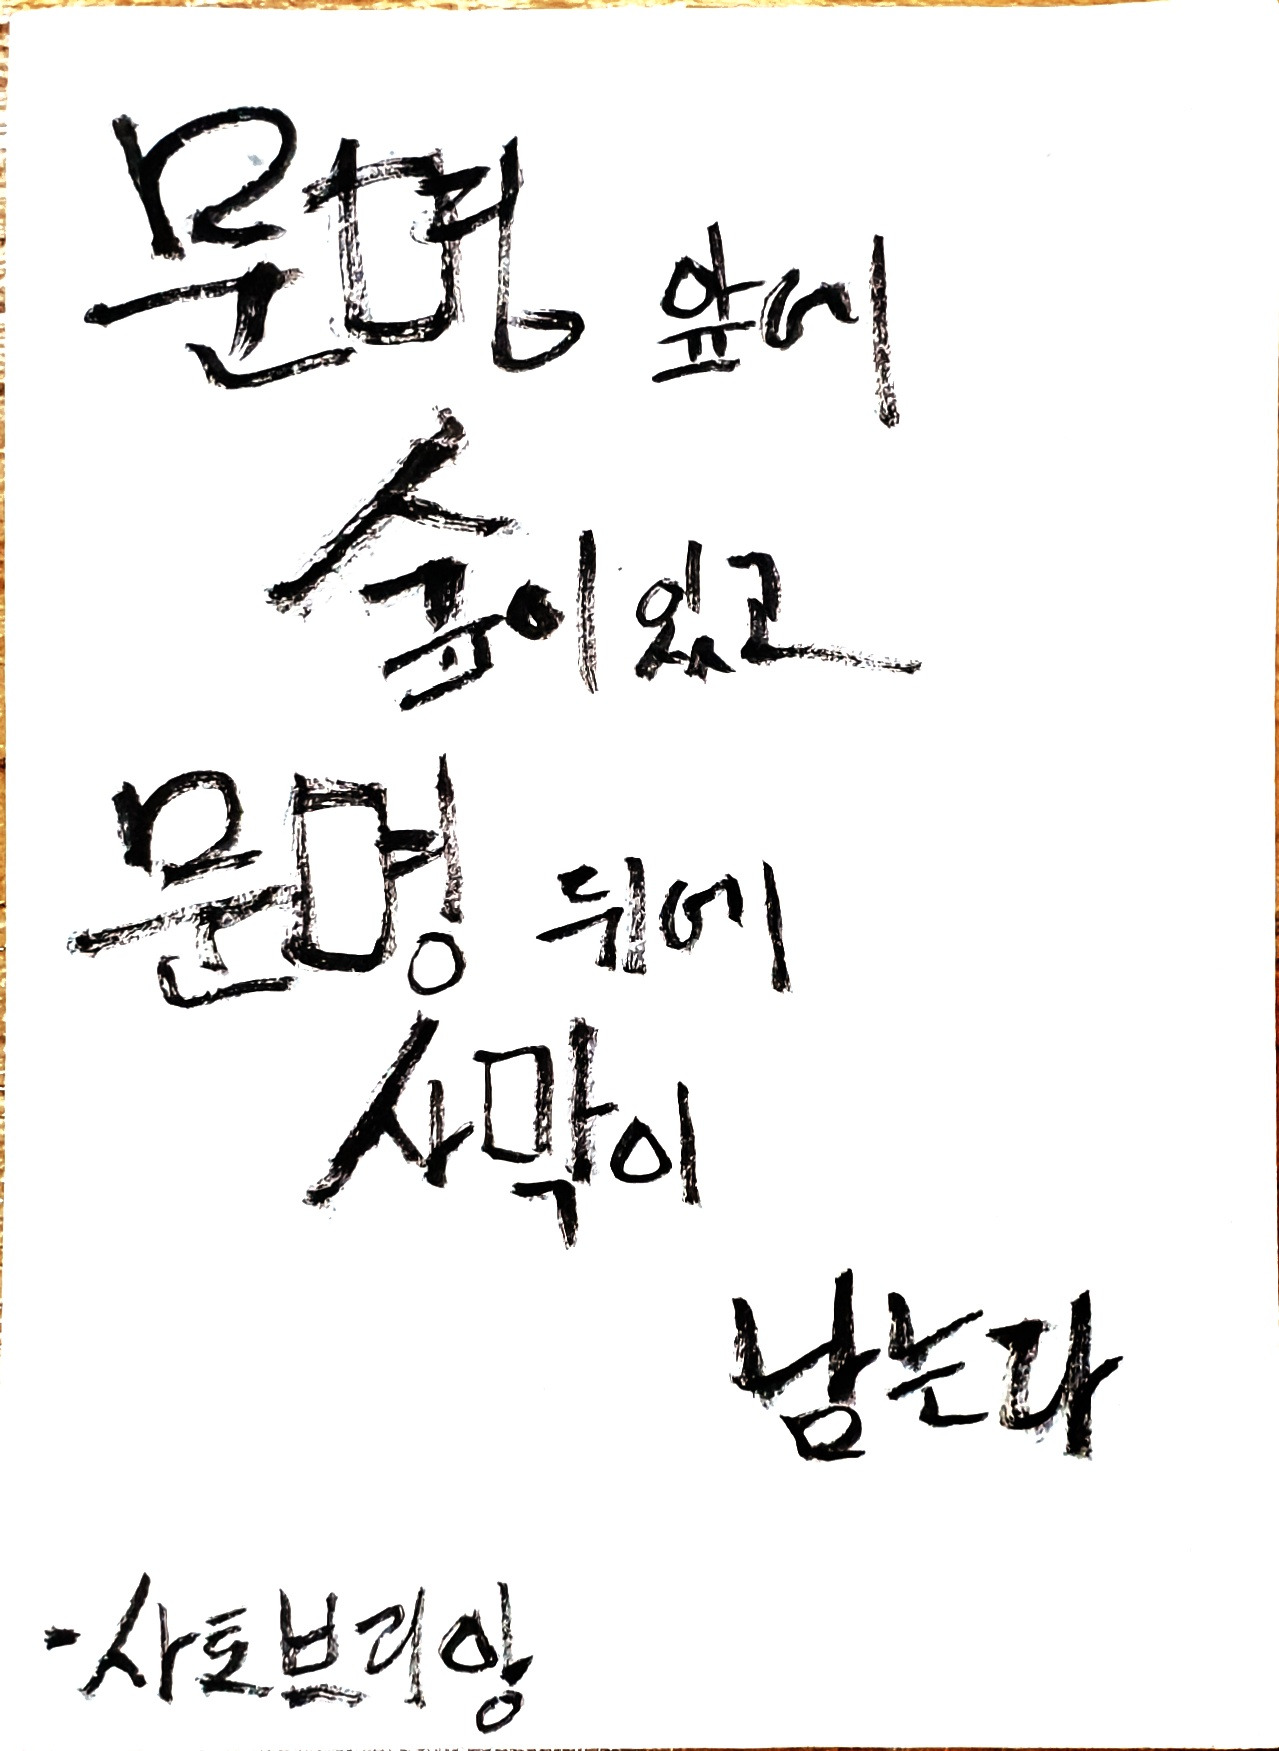 문명 앞에
숲이 있고
문명 뒤에
사막이
남는다
-사토브리앙